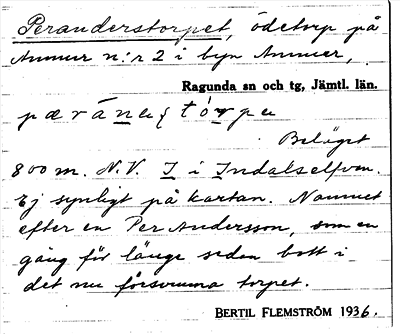 Peranderstorpet, ödetorp på
Ammer n:r 2 i byn Ammer,
Ragunda sn och tg, Jämtl. län.
pæràne{ tórpe
Beläget
800 m. N.V. I i Indalselfven.
Ej synligt på kartan. Namnet
efter en Per Andersson, som en
gång för länge sedan bott i
det nu försvunna torpet.
BERTIL FLEMSTRÖM 1936.